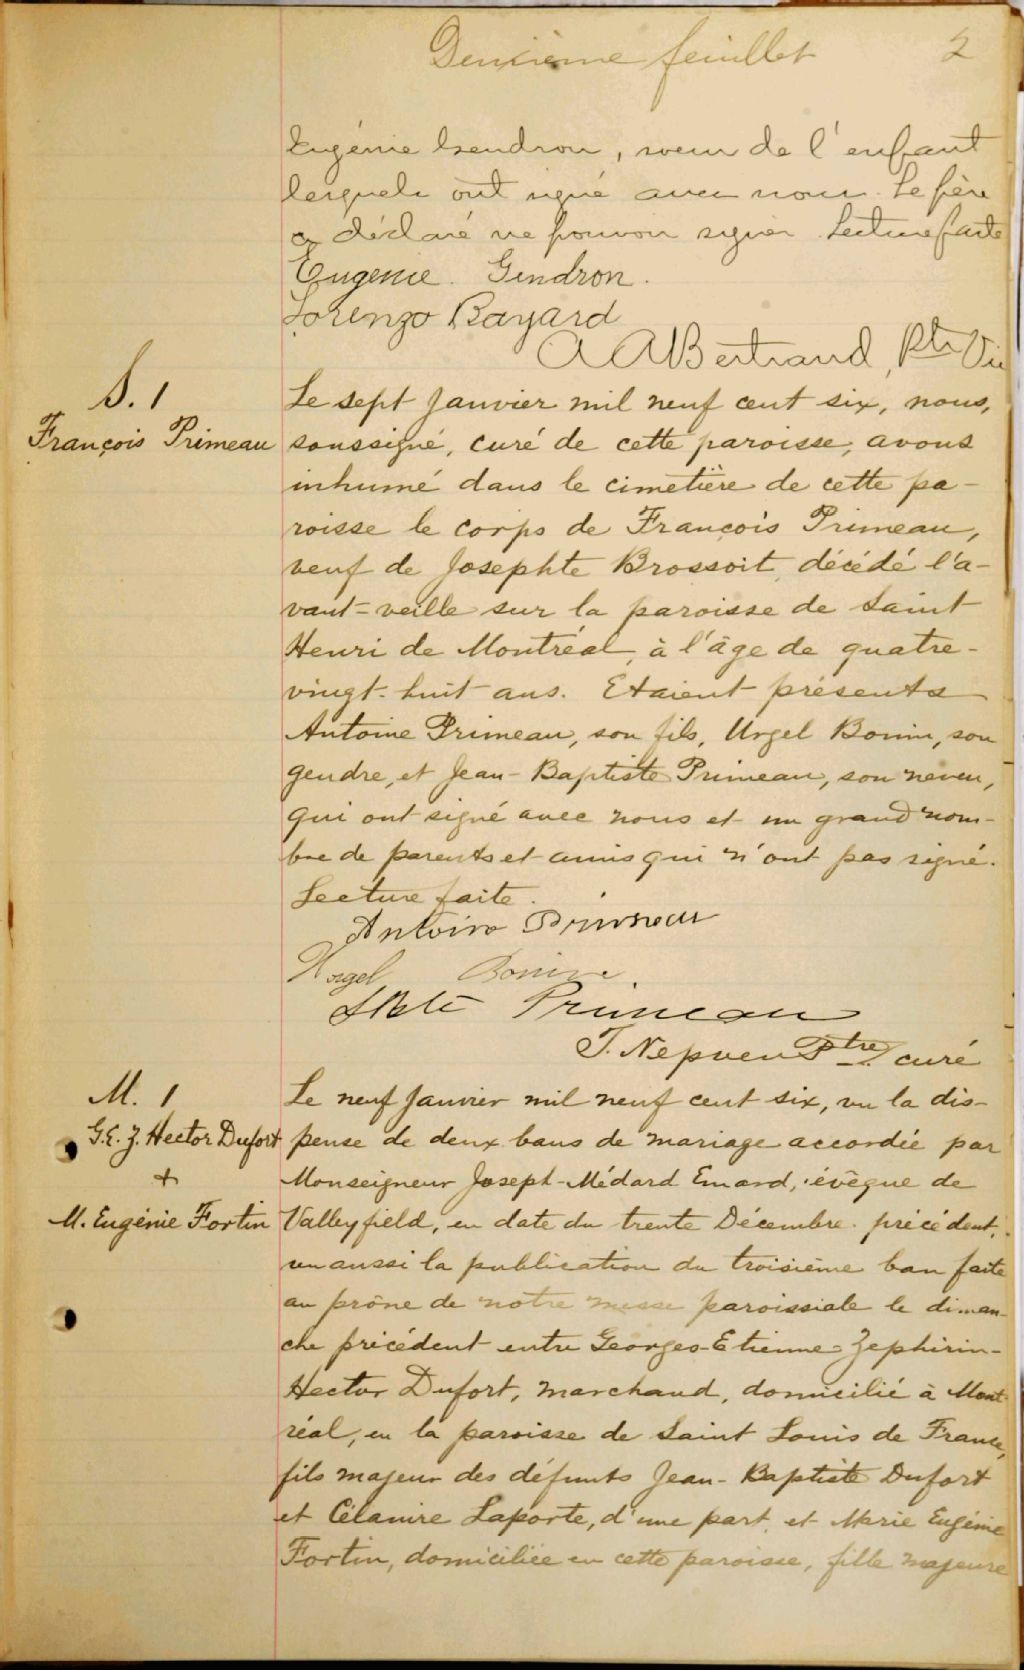 Deuxième feuillet 2
Eugénie Gendron, soeur de l'enfant
lesquels ont signé avec nous. Le père
a déclaré ne pouvoir signer. Lecture faite
Eugenie Gendron.
Lorenzo Bayard
A A Bertrand, Ptr Vic
S. 1
François Primeau
Le sept Janvier mil neuf cent six, nous,
soussigné, curé de cette paroisse, avons
inhumé dans le cimetière de cette pa-
roisse le corps de François Primeau,
veuf de Josephte Brossoit, décédé l'a-
vant-veille sur la paroisse de Saint
Henri de Montréal, à l'âge de quatre-
vingt-huit ans. Etaient présents
Antoine Primeau, son fils, Urgel Bonin, son
gendre, et Jean-Baptiste Primeau, son neveu,
qui ont signé avec nous et un grand nom-
bre de parents et amis qui n'ont pas signé.
Lecture faite.
Antoine Primeau
Urgel Bonin
JBte Primeau
T. Nepveu Ptre curé
M. 1
G.E. Z. Hector Dufort
+
M. Eugénie Fortin
Le neuf Janvier mil neuf cent six, vu la dis-
pense de deux bans de mariage accordée par
Monseigneur Joseph-Médard Emard, évêque de
Valleyfield, en date du trente Décembre précédent,
vu aussi la publication du troisième ban faite
au prône de notre messe paroissiale le diman-
che précédent entre Georges-Etienne-Zephirin-
Hector Dufort, marchand, domicilié à Mont-
réal, en la paroisse de Saint Louis de France,
fils majeur des défunts Jean-Baptiste Dufort
et Célanire Laporte, d'une part, et Marie Eugénie
Fortin, domiciliée en cette paroisse, fille majeure